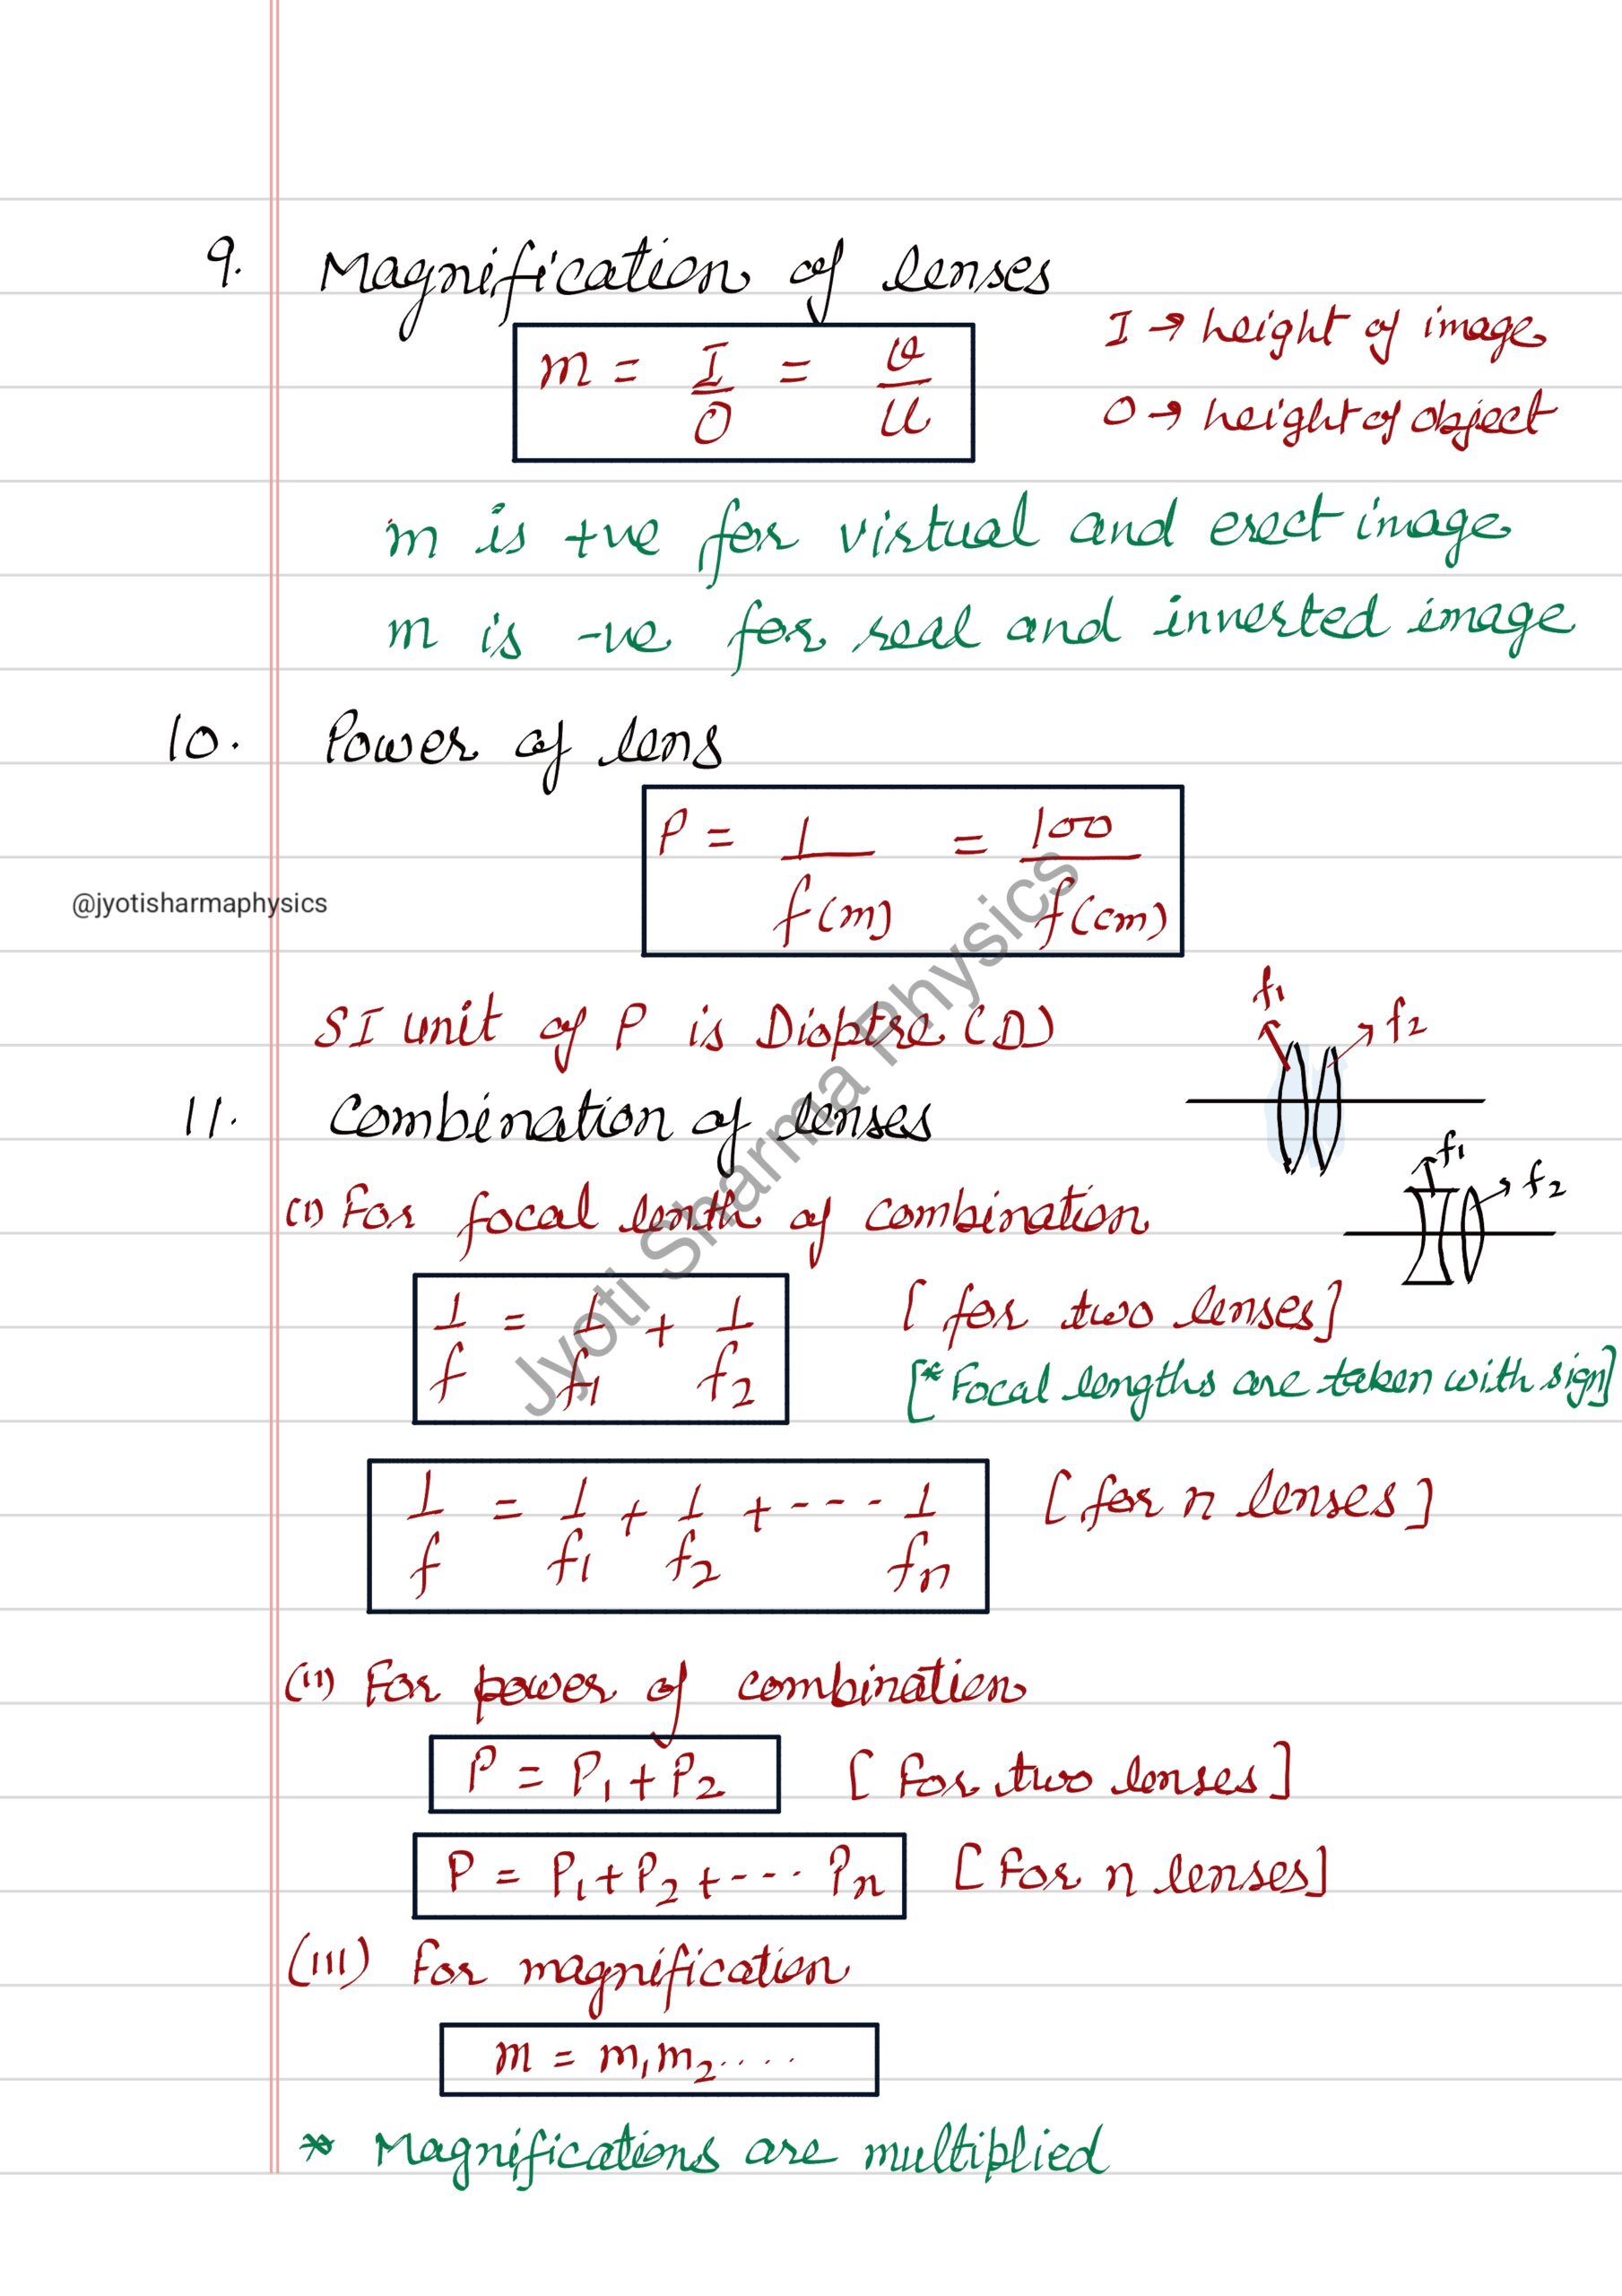 9. Magnification of lenses
m = I/O = v/u
I → height of image
O → height of object
m is +ve for virtual and erect image
m is -ve for real and inverted image
10. Power of lens
P = 1/f(m) = 100/f(cm)
@jyotisharmaphysics
SI unit of P is Dioptre (D)
f1
f2
11. Combination of lenses
f1
f2
(i) For focal lenth of combination
1/f = 1/f1 + 1/f2 [for two lenses]
[* Focal lengths are taken with sign]
1/f = 1/f1 + 1/f2 + ---- 1/fn [for n lenses]
(ii) For power of combination
P = P1 + P2 [For two lenses]
P = P1 + P2 + ---- Pn [For n lenses]
(iii) For magnification
m = m1m2....
* Magnifications are multiplied
Jyoti Sharma Physics